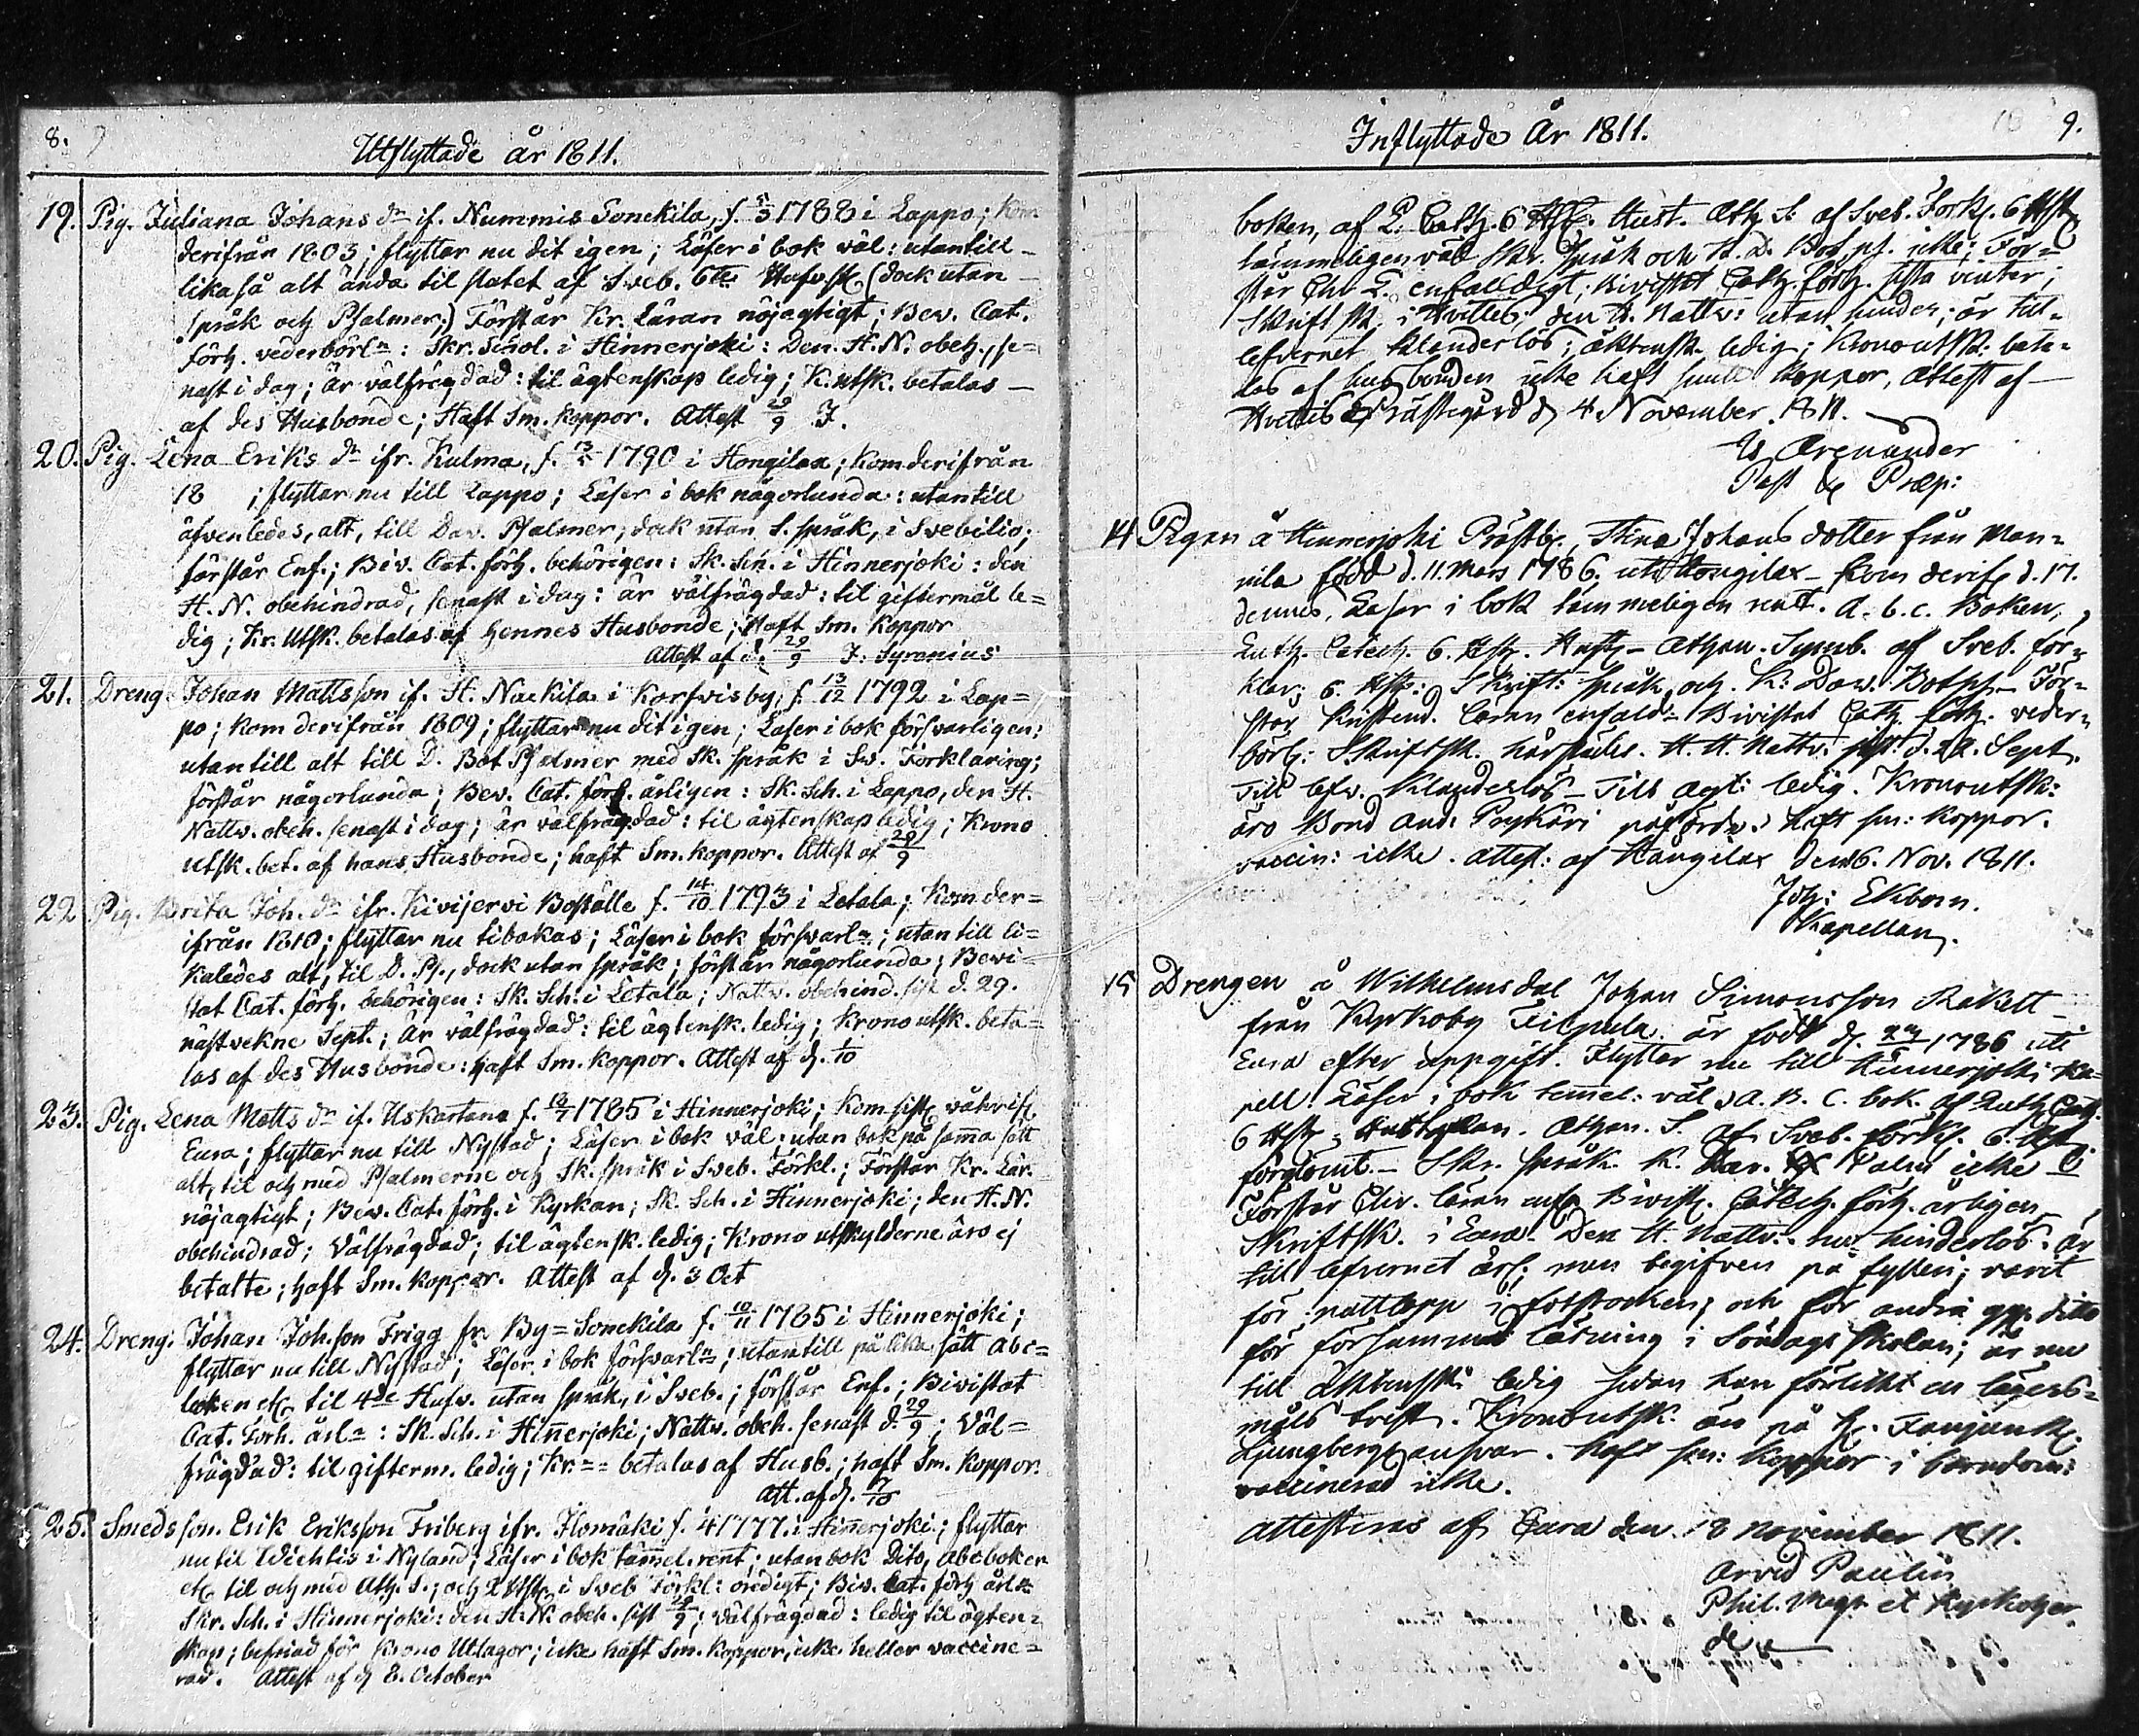 8.
Utflyttade år 1811.
19. Pig. Juliana Johans dr if. Nummis Sonckila, f. 5/3 1788 i Lappo; kom
derifrån 1803; flyttar nu dit igen; Läser i bok väl: utantill
likaså alt ända til slutet af Sveb. 6te Hufvst. (dock utan
språk och Psalmer;) Förstår Kr. Läran nöjagtigt; Bev. Cat.
förh. vederbörln: Skr. Schol. i Hinnerjoki: Den H. N. obeh. se=
nast i dag; är välfrägdad: til ägtenskap ledig; K. utsk. betalas
af des Husbonde; Haft Sm. koppor. Attest 29/9 J.
20. Pig. Lena Eriks dr ifr. Kulma, f. 13/5 1790 i Hongilax; Kom derifrån
18 ; flyttar nu till Lappo; Läser i bok någorlunda: utantill
äfvenledes, alt, till Dav. Psalmer, dock utan S. språk, i Svebilio;
förstår Enf.; Biv. Cat. förh. behörigen: Sk. Sch. i Hinnerjoki: den
H. N. obehindrad, senast i dag: är välfrägdad: til giftermål le=
dig; Kr. Utsk. betalas af hennes Husbonde; Haft Sm. Koppor
Attest af d. 29/9 J. Syrenius
21. Dreng. Johan Mattsson if. H. Nuckila i Korfvisby, f. 13/12 1792 i Lap=
po; kom derifrån 1809; flyttar nu dit igen; Läser i bok försvarligen;
utantill alt till D. Bot Psalmer med Sk. språk i Sv. Förklaring;
förstår någorlunda; Bev. Cat. förh. årligen: Sk. Sch. i Lappo, den H.
Nattv. obeh. senast i dag; är välfrägdad: til ägtenskap ledig; Krono
utsk. bet. af hans Husbonde; haft Sm. koppor. Attest af 29/9
22 Pig. Brita Joh. dr ifr. Kivijervi Boställe f. 14/10 1793 i Letala; Kom der=
ifrån 1810; flyttar nu tibakas; Läser i bok försvarln; utantill li=
kaledes alt, til D. Ps., dock utan språk; förstår någorlunda; Bevi
stat Cat. förh. behörigen: Sk. Sch. i Letala; Nattv. obehind. sist d. 29.
nästvekne Sept.; är välfrägdad: til ägtensk. ledig; Krono utsk. beta=
las af des Husbonde: haft Sm. koppor. Attest af d. 1/10
23. Pig. Lena Matts dr if. Uskartano f. 1785 i Hinnerjoki; Kom sist
Eura; flyttar nu till Nystad; Läser i bok väl: utan bok på samma sätt
alt, til och med Psalmerne och Sk. språk i Sveb. Förkl.; Förstår Kr. Lär.
nöjagtigt; Bev. Cat. förh. i Kyrkan; Sk. Sch. i Hinnerjoki; den H. N.
obehindrad; Välfrägdad; til ägtensk. ledig; Krono utskylderne äro ej
betalte; haft Sm. koppor. Attest af d. 3 Oct
24. Dreng. Johan Johsson Frigg fr. By=Sonckila f. 10/11 1785 i Hinnerjoki;
flyttar nu till Nystad; Läser i bok försvarln; utantill på lika sätt Abc=
boken etc til 4de Hufv. utan språk, i Sveb.; förstår Enf.; Bivistat
Cat. Förh. årln: Sk. Sch. i Hinnerjoki; Nattv. obeh. senast d. 29/9; Väl=
frägdad: til gifterm. ledig; Kr.== betalas af Husb.; haft Sm. Koppor.
Att. af d. 7/10
25. Smedsson. Erik Eriksson Friberg ifr. Ilomäki f. 4 1777 i Hinnerjoki; flyttar
nu til Wichtis i Nyland; Läser i bok tämmel. rent; utan bok Dito, Abcboken
etc til och med Ath. S.; och 2 Hfst. i Sveb Förkl: oredigt; Biv. Cat. förh årln
Skr. Sch. i Hinnerjoki: den H. N. obeh. sist 29/9; välfrägdad: ledig til ägten=
skap; befriad för Krono Utlagor; icke haft Sm. koppor, icke heller vaccine=
rad. Attest af d 8. October
9.
Inflyttade År 1811.
boken, af L. Cath. 6 Hfst. Hust. Ath. S. af Sveb. Förk. 6 Hfst
tämmeligen väl Skr. språk och K. D. Bot ps. icke; För=
står Chr L. enfalldigt; bivistat Cath. förh. sista vinter;
Skrift sk. i Hvittis; den H. Nattv: utan hinder; är till
lefvernet klanderlös; äktensk. ledig; Kronoutsk: beta=
las af husbonden icke haft små koppor, Attest af
Hvittis Prästegård d 4 November 1811.
Arenander
Past & Præp:
14 Pigan å Hinnerjoki Prästbr, Stina Johans dotter från Man=
nila född d. 11. Mars 1786. uti Hongilax — kom derifr d. 17.
dennes. Läser i bok tämmeligen rent. a.b.c. Boken,
Luth. Catech. 6. Hfst. Hust. — Athan. Symb. af Sveb. för=
klar: 6. Hfst: Skrift: språk och K: Dav. Bot ps — För=
står kristend. läran enfald — Bivistat Cath. förh. veder=
börl: Skriftsk. härstädes. H. H. Nattv: sist d. 22. Sept.
Till lefv. Klanderlös — Till ägt: ledig. Kronoutsk:
äro Bond And: påförde. haft sm: koppor.
vaccin: icke. attest: af Hongilax den 6. Nov. 1811.
Joh: Ekbom.
Kapellan.
15 Drengen å Wilhelmsdal Johan Simonsson Rakett
från Kyrkoby Filpula är född d. 1786 uti
Eura efter uppgift. Flyttar nu till Hinnerjoki Ka=
pell. Läser i bok temel: väl A. B. C. bok. af Luth Cath.
6 Hfst. Athan. S. af Sveb. Förkl. 6. Hfst
Skr. språk. K. Dav. icke
Förstår Chr. läran Bivist. Catech. förh. årligen
Skriftsk. i Eura. Den H. Nattv: hinderlös. är
till lefvernet ärl; men begifven på fylleri; varit
för nattlopp i fotstocken; och för andra ggn ditto
för försummad läsning i Söndags Skolan; är nu
till äktensk: ledig sedan han förlikt en lägers=
måls tvist. Kronoutsk. än på
Ljungbergs ansvar. haft sm: koppor i barndom:
vaccinerad icke.
attesteras af Eura den 18 november 1811.
Arvid Paulin
Phil. Magr et Kyrkoher
de